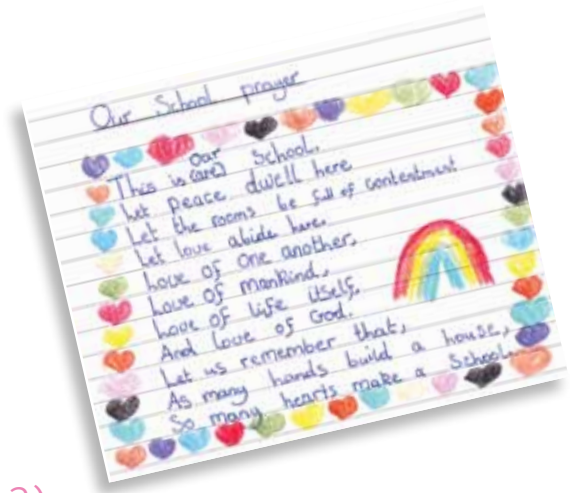 Our School prayer
This is (are) our School.
Let peace dwell here
Let the rooms be full of contentment
Let love abide here.
Love of one another,
Love of mankind,
Love of life itself,
And love of God.
Let us remember that,
As many hands build a house,
So many hearts make a School.